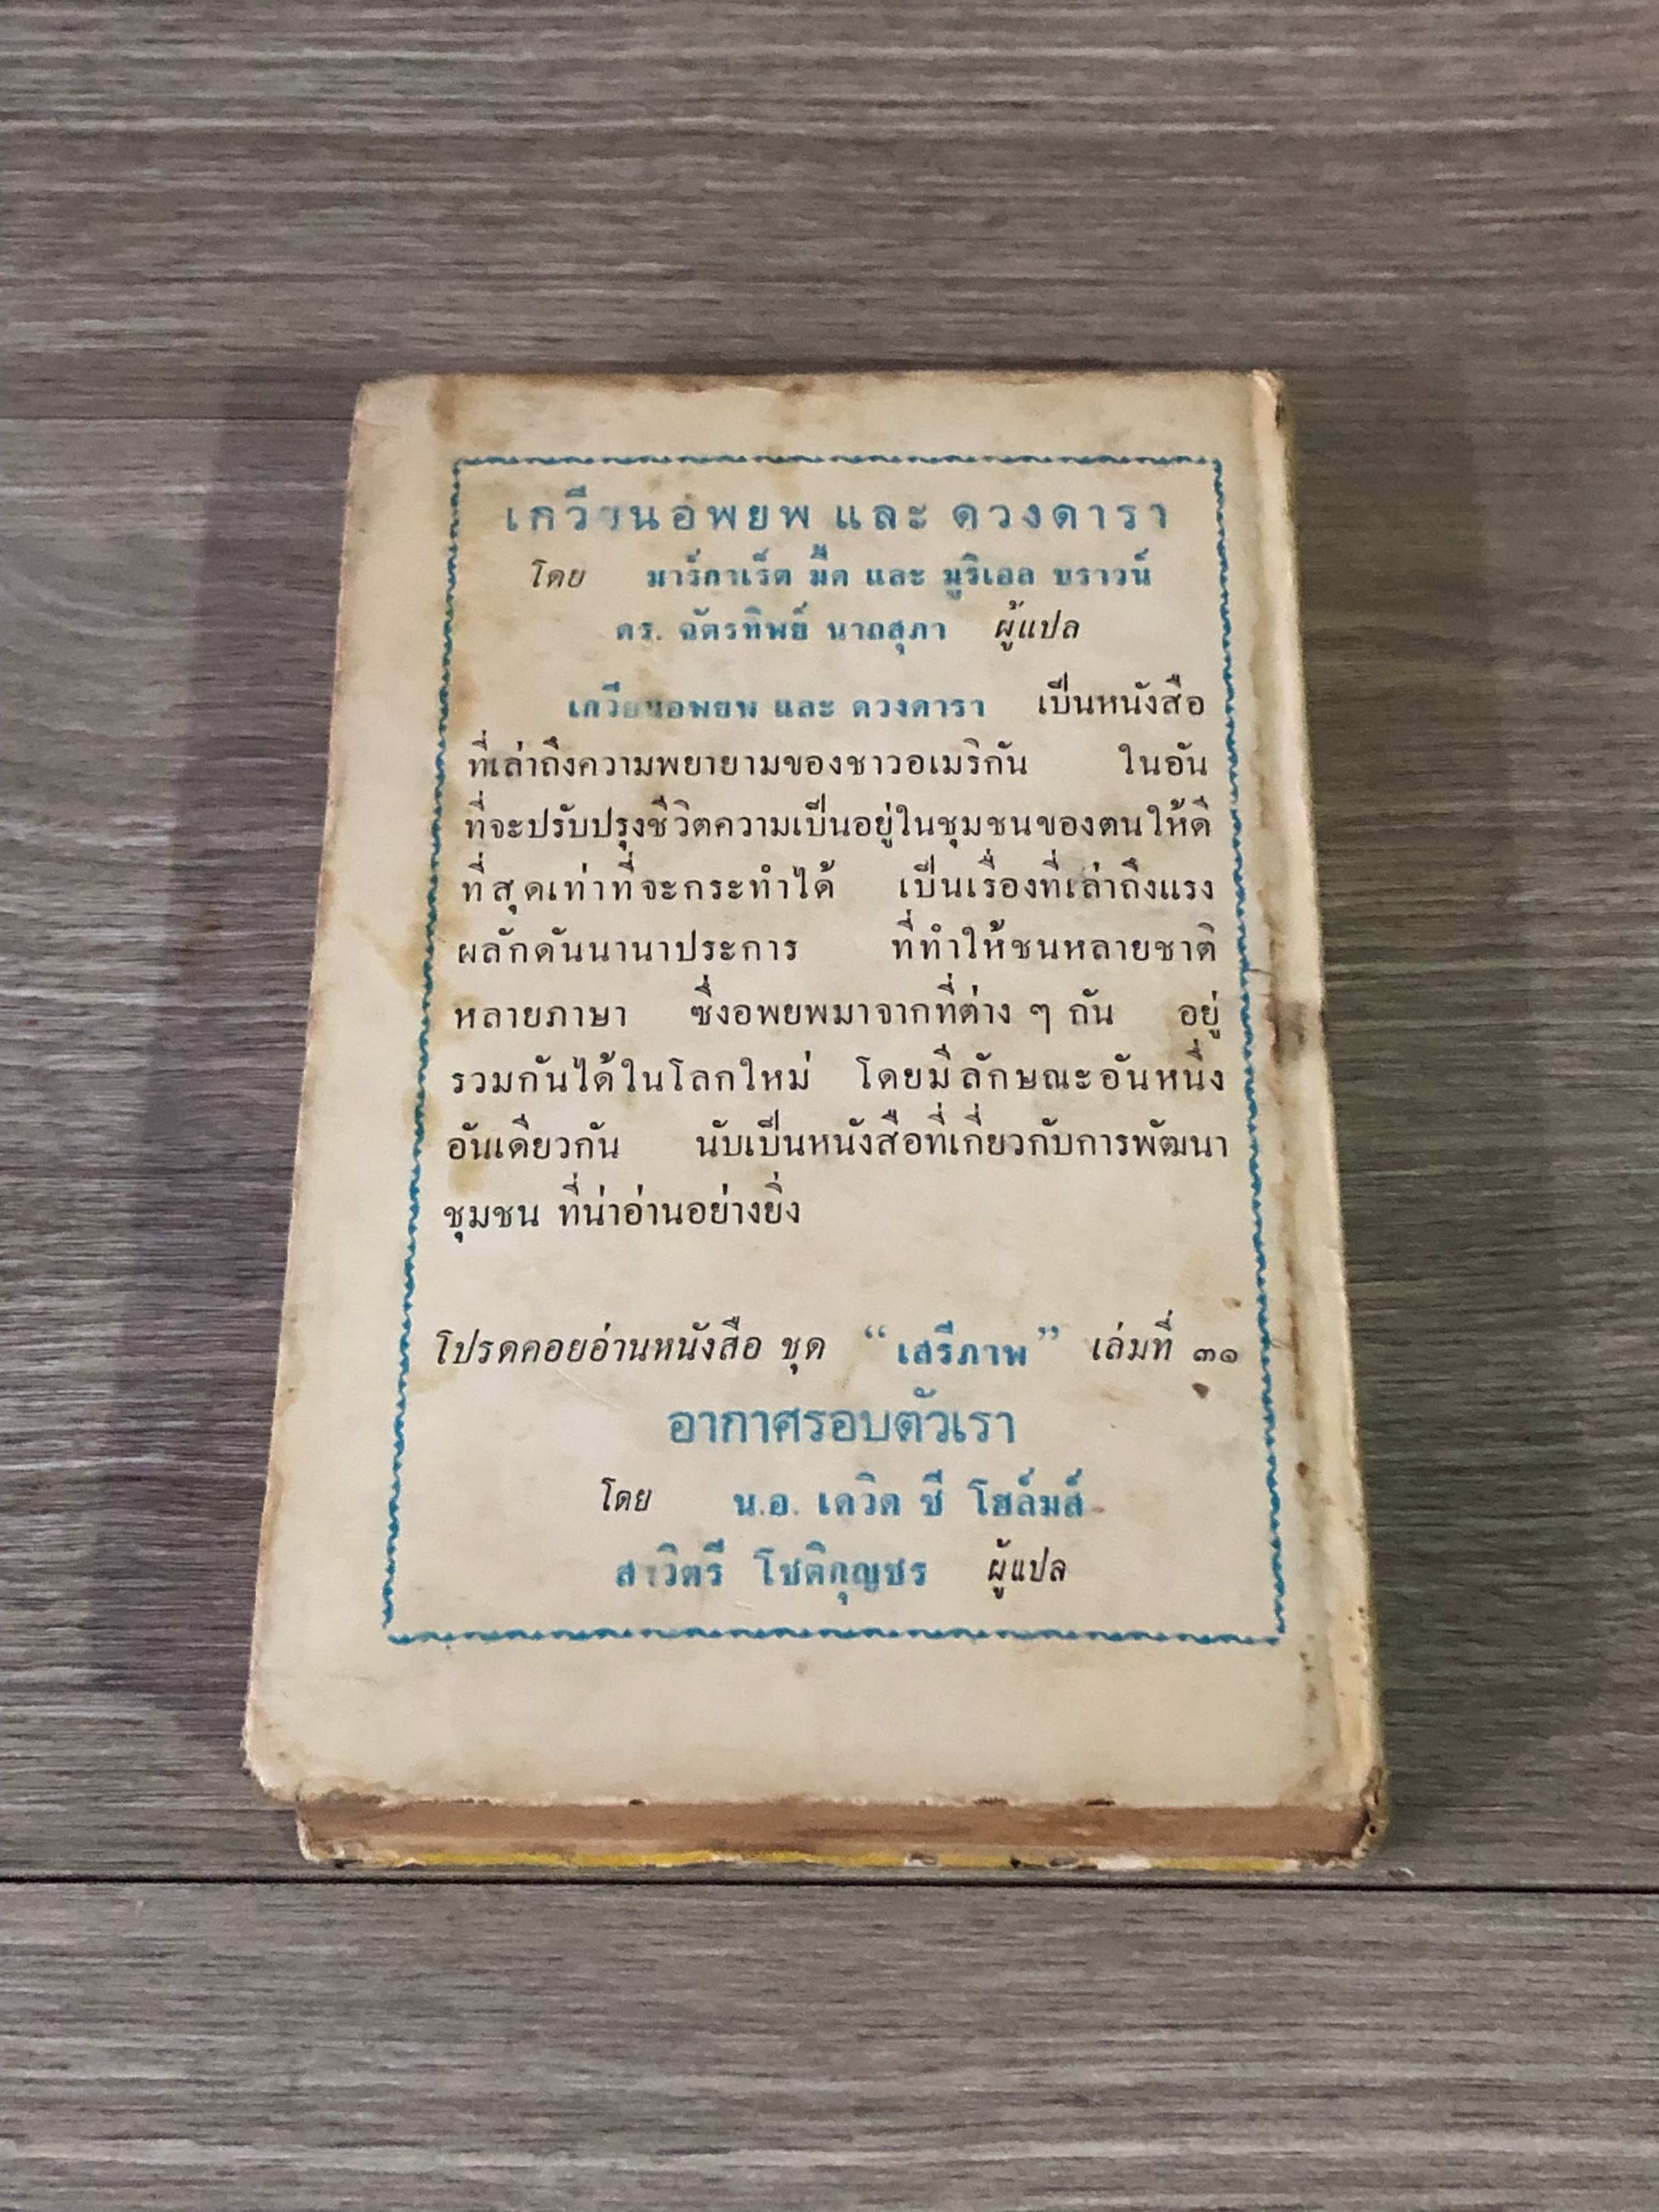 เกวียนอพยพ และ ดวงดารา
โดย มาร์กาเร็ต มี้ด และ มูริเอล บราวน์
ดร. ฉัตรทิพย์ นาถสุภา ผู้แปล
เกวียนอพยพ และ ดวงดารา เป็นหนังสือ
ที่เล่าถึงความพยายามของชาวอเมริกัน ในอัน
ที่จะปรับปรุงชีวิตความเป็นอยู่ในชุมชนของตนให้ดี
ที่สุดเท่าที่จะกระทำได้ เป็นเรื่องที่เล่าถึงแรง
ผลักดันนานาประการ ที่ทำให้ชนหลายชาติ
หลายภาษา ซึ่งอพยพมาจากที่ต่าง ๆ กัน อยู่
รวมกันได้ในโลกใหม่ โดยมีลักษณะอันหนึ่ง
อันเดียวกัน นับเป็นหนังสือที่เกี่ยวกับการพัฒนา
ชุมชน ที่น่าอ่านอย่างยิ่ง
โปรดคอยอ่านหนังสือ ชุด “เสรีภาพ” เล่มที่ ๓๑
อากาศรอบตัวเรา
โดย น.อ. เดวิด ซี โฮล์มส์
สาวิตรี โชติกุญชร ผู้แปล